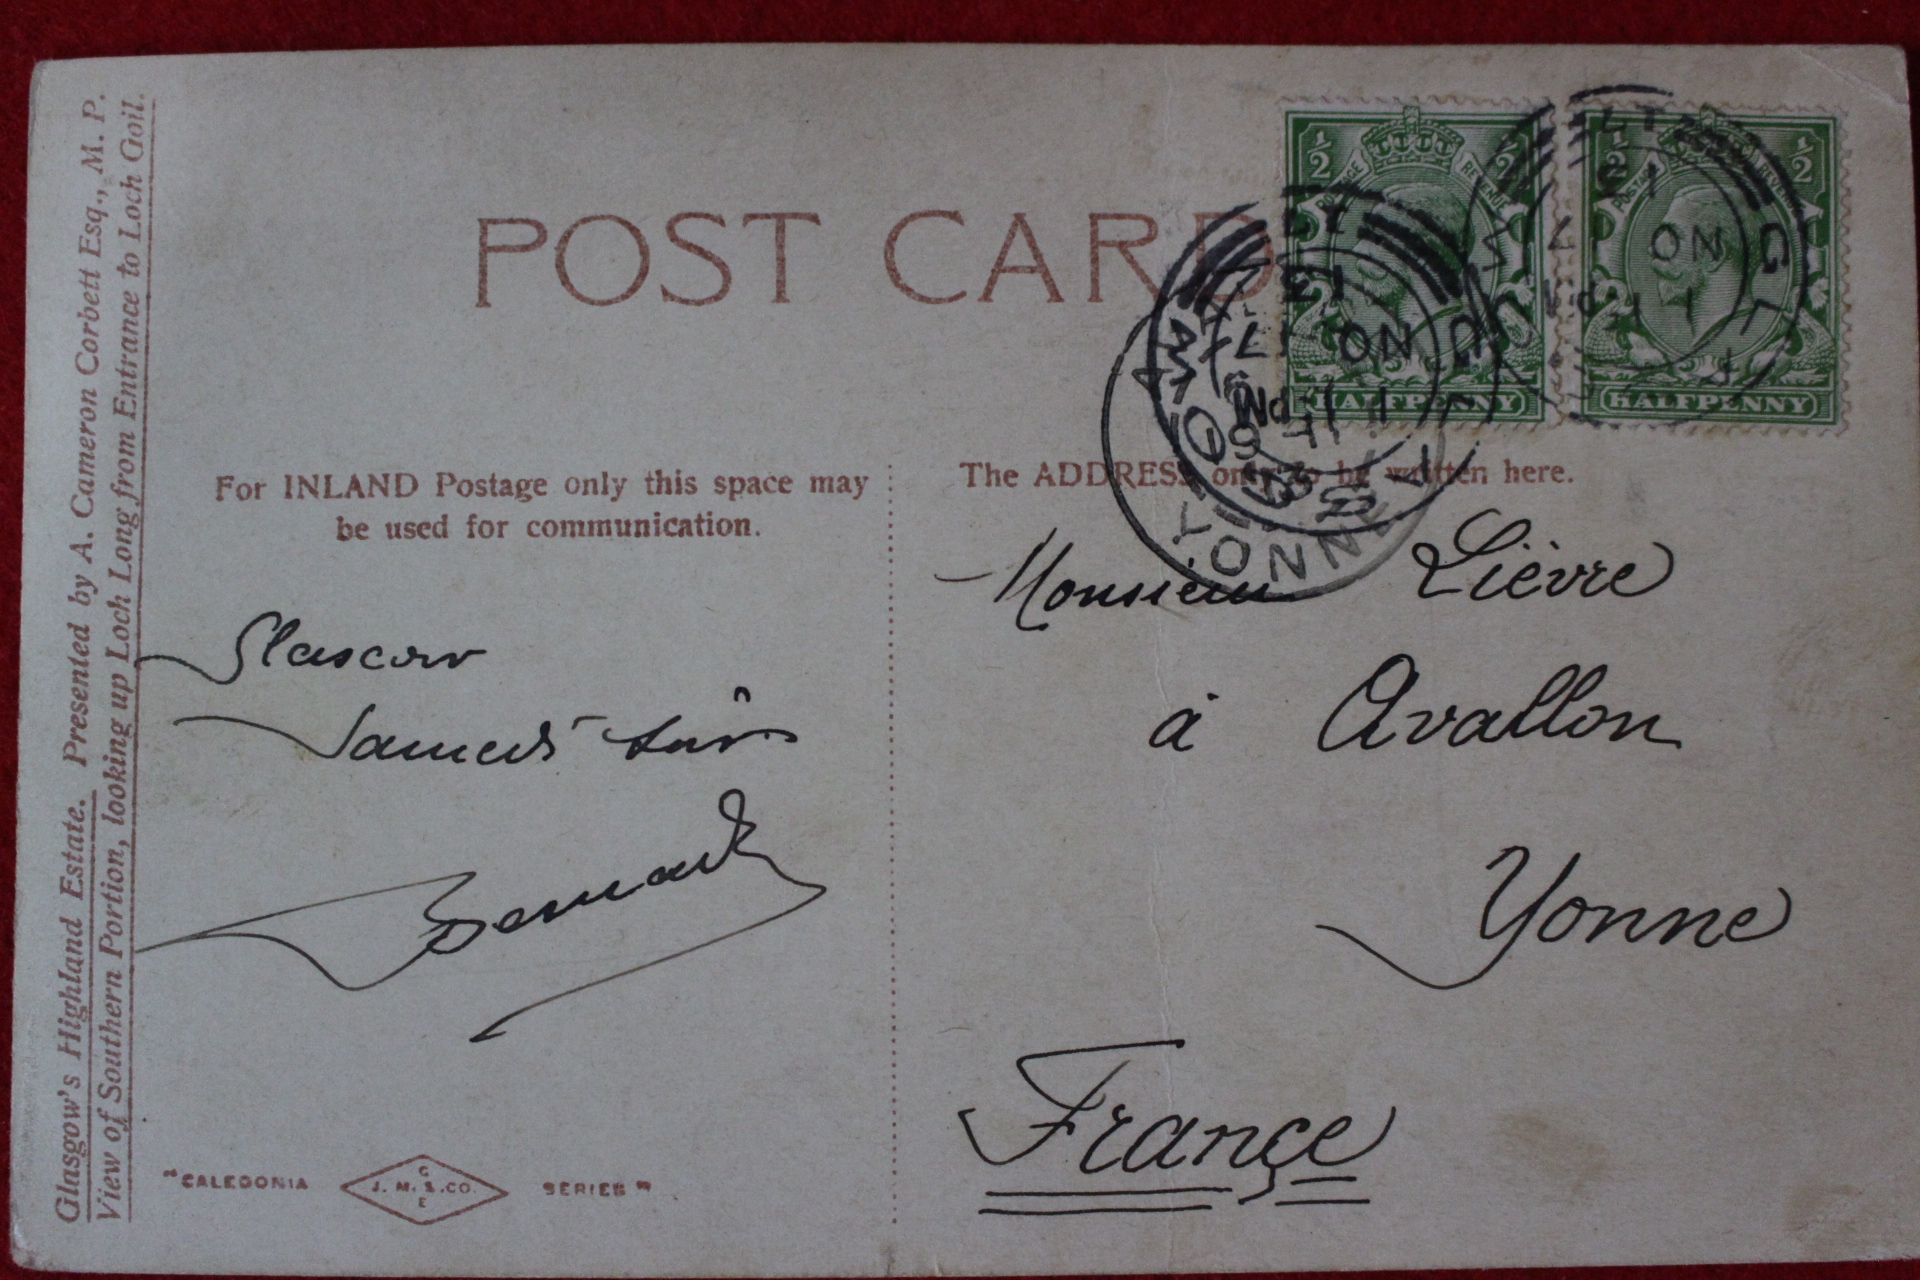 Glasgow's Highland Estate. Presented by A. Cameron Corbett Esq., M. P.
View of Southern Portion, looking up Loch Long from Entrance to Loch Goil.
POST CARD
For INLAND Postage only this space may
be used for communication.
The ADDRESS only to be written here.
Glascow
Samedi
Monsieur Lièvre
à Avallon
Yonne
France
"CALEDONIA
G
J. M. & CO.
E
SERIES"
1/2 1/2
POSTAGE REVENUE
HALFPENNY
1/2 1/2
POSTAGE REVENUE
HALFPENNY
GL
NO 17
13
11 PM
NO 17
13
YONNE